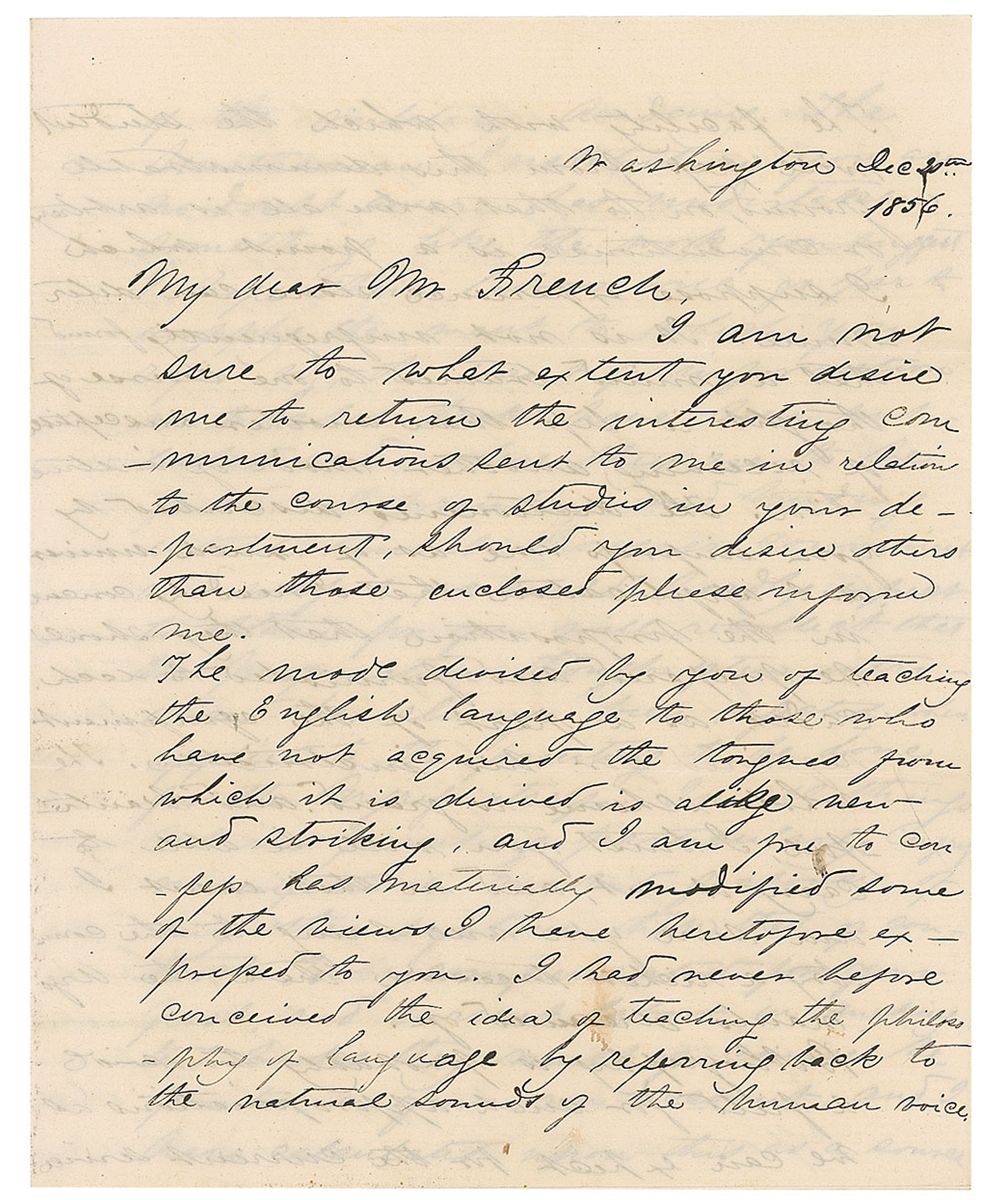 Washington Dec 20th
1856.
My dear Mr French,
I am not
sure to what extent you desire
me to return the interesting com
-munications sent to me in relation
to the course of studies in your de-
-partment, should you desire others
than those enclosed plese inform
me.
The mode divised by you of teaching
the English language to those who
have not acquired the tongues from
which it is derived is alike new
and striking, and I am free to con
-fess has materially modified some
of the views I have heretofore ex-
pressed to you. I had never before
conceived the idea of teaching the philoso
-phy of language by referring back to
the natural sounds of the human voice.